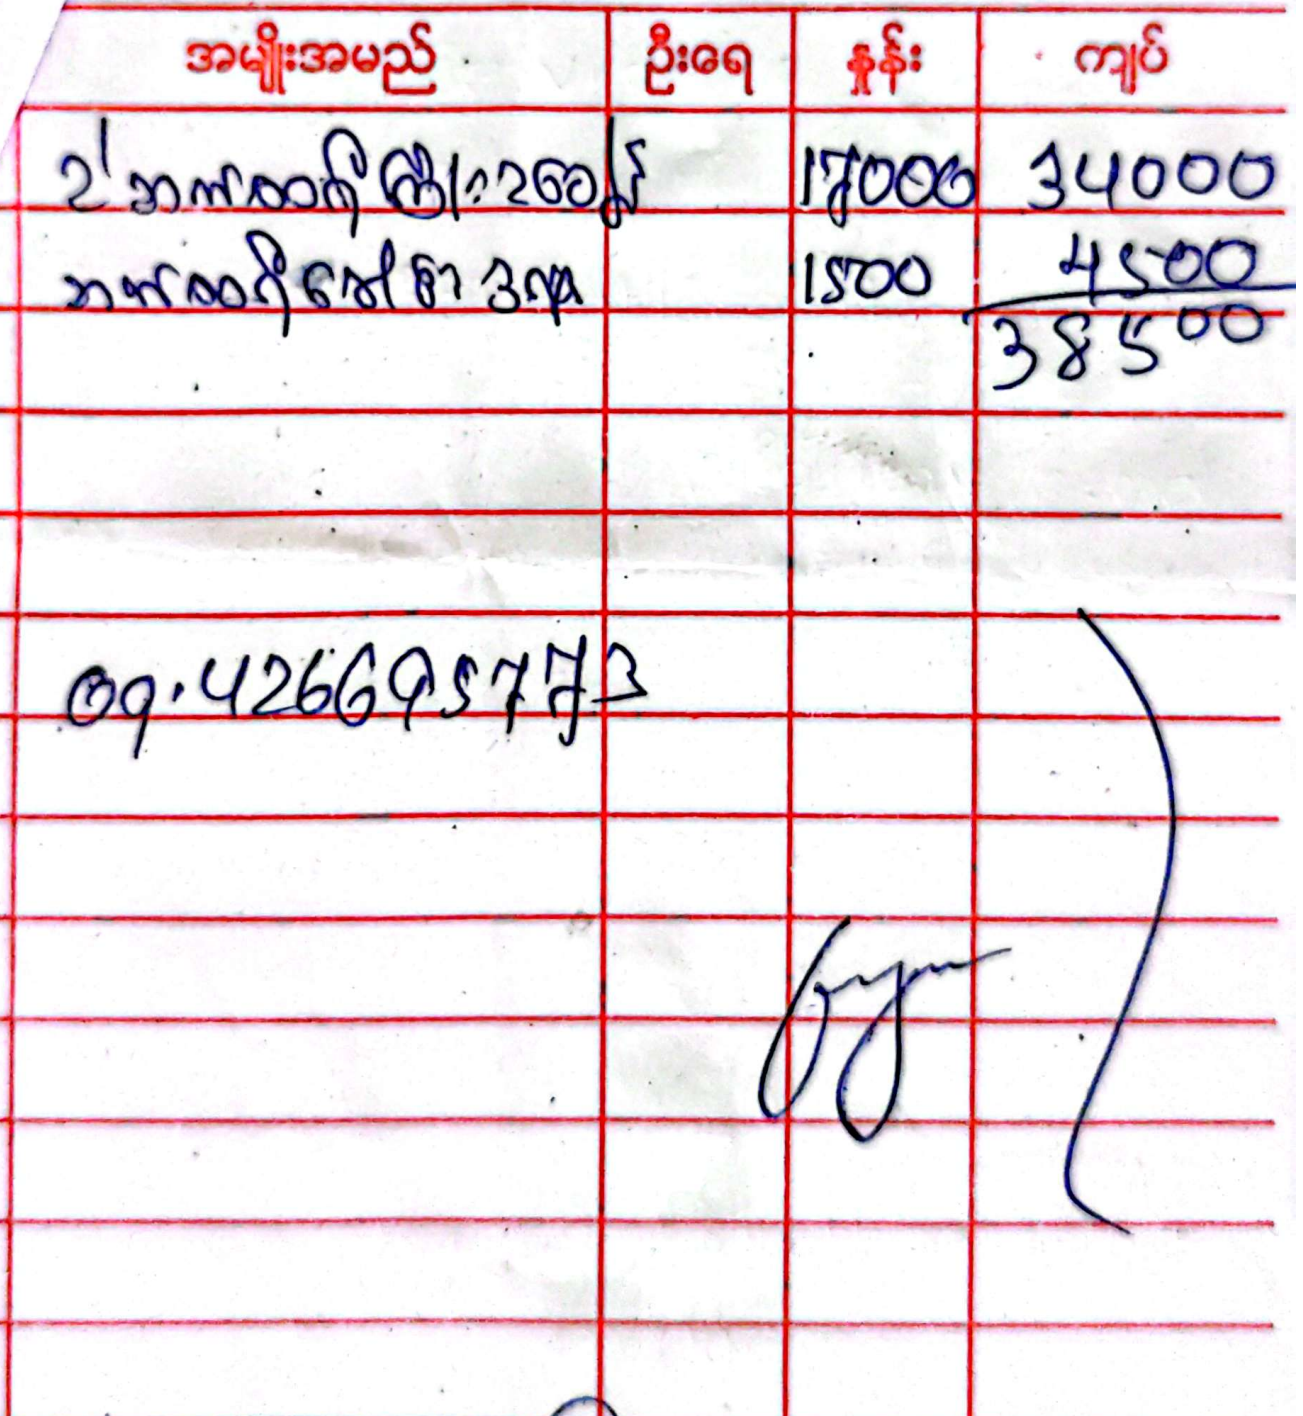 အမျိုးအမည် ဦးရေ နှုန်း ကျပ်
2' ဘက်ထရီကြိုး 2 ချောင်း 17000 34000
ဘက်ထရီခေါင်း 3 လုံး 1500 4500
38500
09.426695773